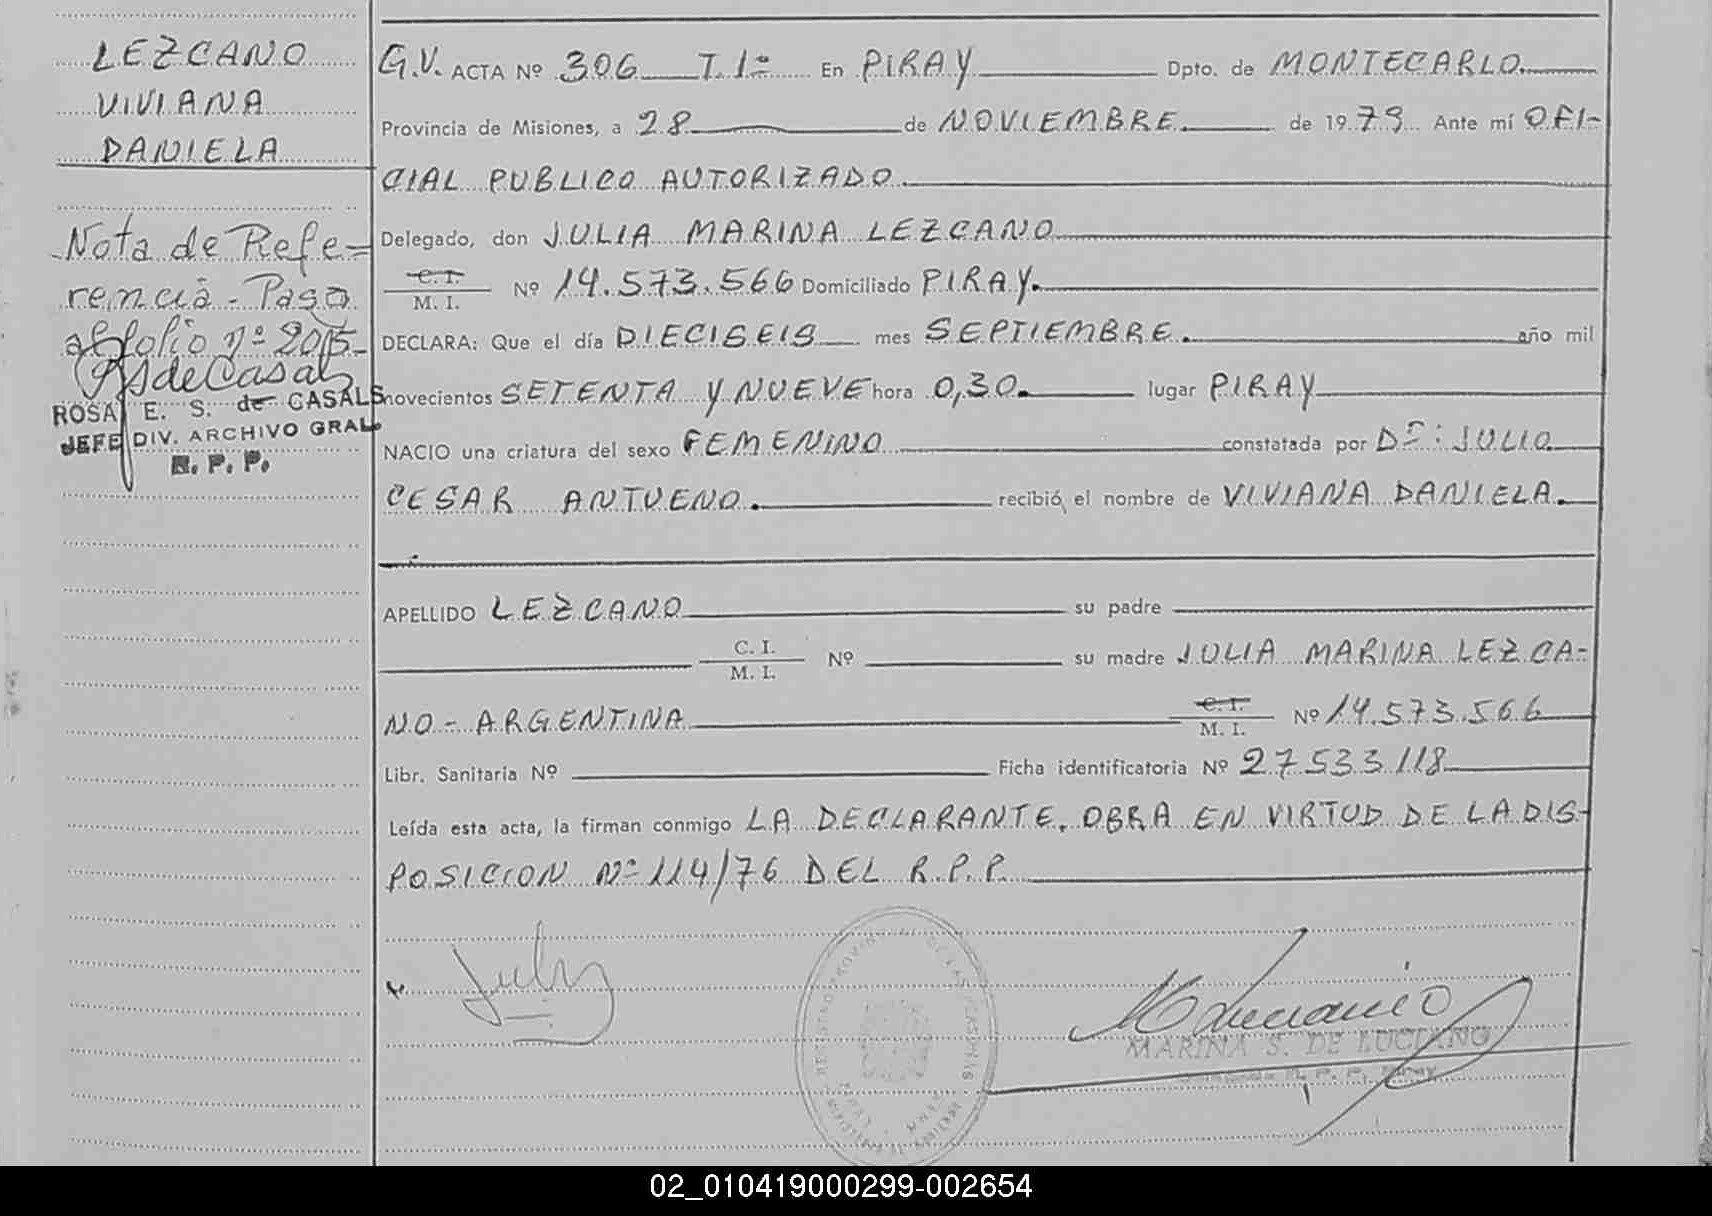 LEZCANO
VIVIANA
DANIELA
Nota de Refe=
rencia - Pasa
al folio nº 205-
ROSA E. S. de CASALS
JEFE DIV. ARCHIVO GRAL.
R. P. P.
G.V. ACTA Nº 306 T. 1º En PIRAY Dpto. de MONTECARLO.
Provincia de Misiones, a 28 de NOVIEMBRE. de 1979 Ante mí OFI-
CIAL PUBLICO AUTORIZADO.
Delegado, don JULIA MARINA LEZCANO
C. I.
M. I. Nº 14.573.566 Domiciliado PIRAY.
DECLARA: Que el día DIECISEIS mes SEPTIEMBRE. año mil
novecientos SETENTA Y NUEVE hora 0,30. lugar PIRAY
NACIO una criatura del sexo FEMENINO constatada por Dr: JULIO
CESAR ANTUENO. recibió el nombre de VIVIANA DANIELA.
APELLIDO LEZCANO su padre
C. I.
M. I. Nº su madre JULIA MARINA LEZCA-
NO - ARGENTINA C. I.
M. I. Nº 14.573.566
Libr. Sanitaria Nº Ficha identificatoria Nº 27533118
Leída esta acta, la firman conmigo LA DECLARANTE. OBRA EN VIRTUD DE LA DIS-
POSICION Nº 114/76 DEL R.P.P.
MARINA S. DE LUCIANO
R. P. P. Piray
02_010419000299-002654